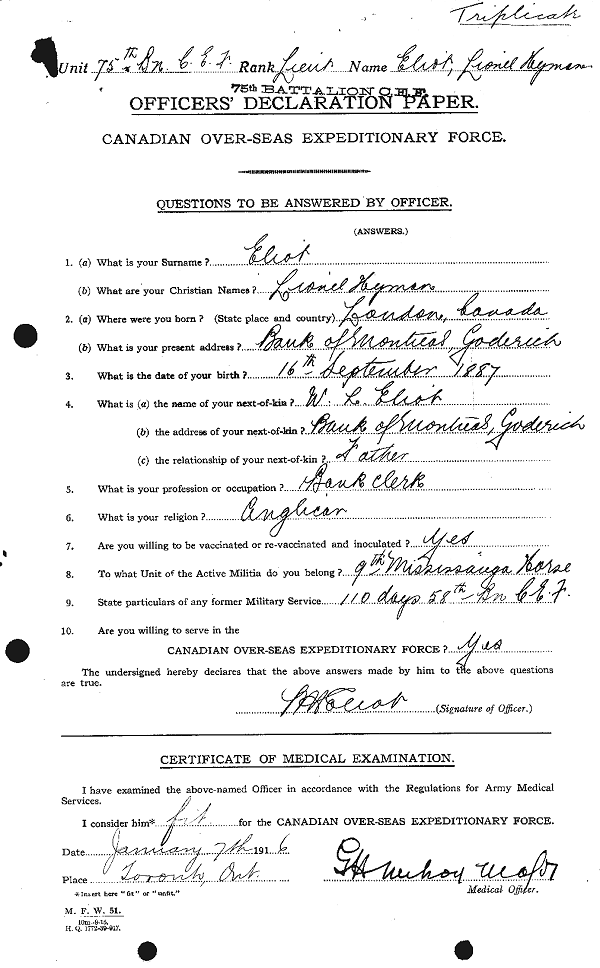 Triplicate
Unit 75th Bn C.E.F. Rank Lieut Name Eliot, Lionel Hyman
75th BATTALION C.E.F.
OFFICERS' DECLARATION PAPER.
CANADIAN OVER-SEAS EXPEDITIONARY FORCE.
QUESTIONS TO BE ANSWERED BY OFFICER.
(ANSWERS.)
1. (a) What is your Surname? Eliot
(b) What are your Christian Names? Lionel Hyman
2. (a) Where were you born? (State place and country) London, Canada
(b) What is your present address? Bank of Montreal, Goderich
3. What is the date of your birth? 16th September 1887
4. What is (a) the name of your next-of-kin? W. L. Eliot
(b) the address of your next-of-kin? Bank of Montreal, Goderich
(c) the relationship of your next-of-kin? Father
5. What is your profession or occupation? Bank Clerk
6. What is your religion? Anglican
7. Are you willing to be vaccinated or re-vaccinated and inoculated? Yes
8. To what Unit of the Active Militia do you belong? 9th Mississauga Horse
9. State particulars of any former Military Service 110 days 58th Bn C.E.F.
10. Are you willing to serve in the
CANADIAN OVER-SEAS EXPEDITIONARY FORCE? Yes
The undersigned hereby declares that the above answers made by him to the above questions
are true.
(Signature of Officer.)
CERTIFICATE OF MEDICAL EXAMINATION.
I have examined the above-named Officer in accordance with the Regulations for Army Medical
Services.
I consider him* fit for the CANADIAN OVER-SEAS EXPEDITIONARY FORCE.
Date January 7th 1916
Place Toronto, Ont.
Medical Officer.
*Insert here "fit" or "unfit."
M. F. W. 51.
10m.-9-15.
H. Q. 1772-39-917.